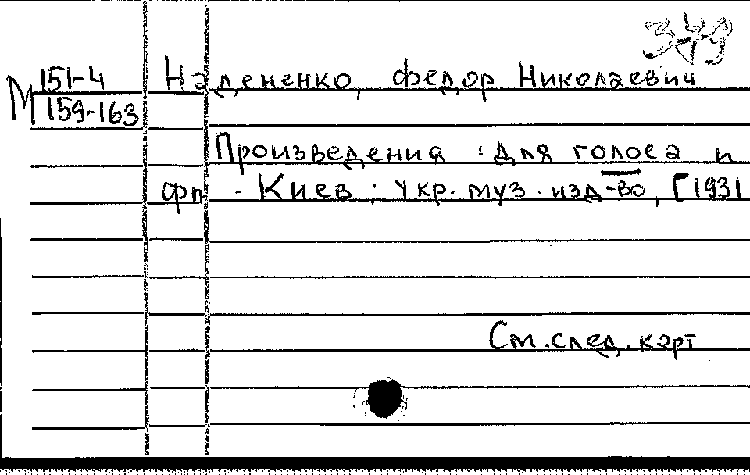 349
151-4
М 159-163
Надененко, Федор Николаевич
Произведения для голоса и
фп. - Киев: Укр. муз. изд-во, [1931
См. след. карт